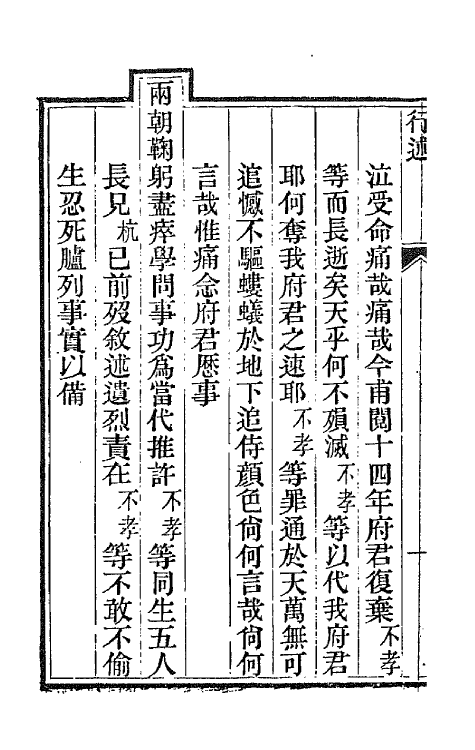 行述
泣受命痛哉痛哉今甫閱十四年府君復棄不孝
等而長逝矣天乎何不殞滅不孝等以代我府君
耶何奪我府君之速耶不孝等罪通於天萬無可
追憾不驅螻蟻於地下追侍顏色尙何言哉尙何
言哉惟痛念府君歷事
兩朝鞠躬盡瘁學問事功爲當代推許不孝等同生五人
長兄杭已前歿敘述遺烈責在不孝等不敢不偷
生忍死臚列事實以備